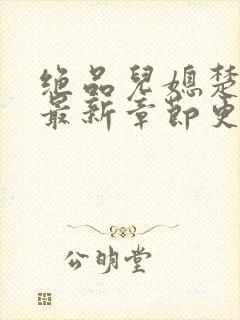 绝品兒媳楚
最新章節更
公明堂